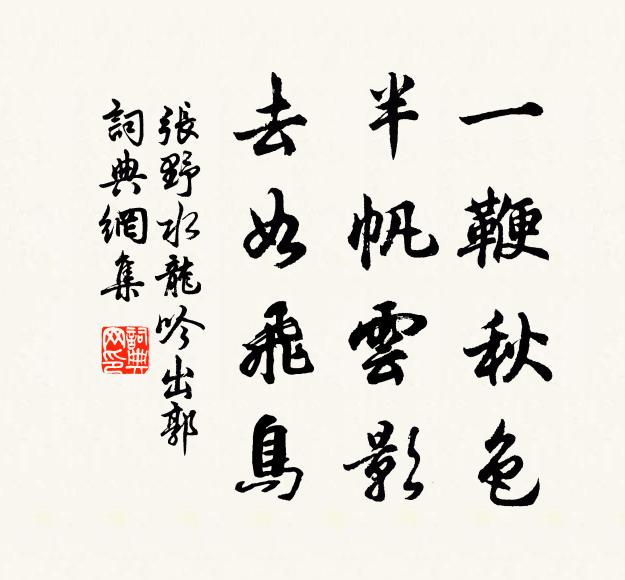 一鞭秋色
半帆雲影
去如飛鳥
張野水龍吟出郭
詞典網集
詞典
网印